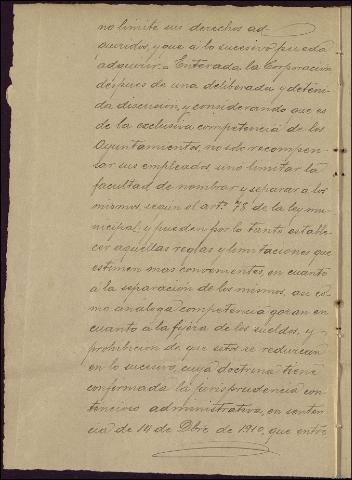 no limite sus derechos ad-
quiridos, y que á lo sucesivo pueda
adquirir.= Enterada la Corporación
despues de una deliberada y deteni-
da discusión, y considerando que es
de la exclusiva competencia de los
Ayuntamientos, no solo recompen-
sar sus empleados sino limitar la
facultad de nombrar y separar á los
mismos, segun el artº 78 de la ley mu-
nicipal y pueden por lo tanto estable-
cer aquellas reglas y limitaciones que
estimen mas convenientes, en cuanto
á la separación de los mismos, asi co-
mo análoga competencia gozan en
cuanto á la fijeza de los sueldos, y
prohibición de que estos se reduzcan
en lo sucesivo, cuya doctrina tiene
confirmada la jurisprudencia con-
tencioso administrativa, en senten-
cia de 14 de Dbre de 1910, que entre